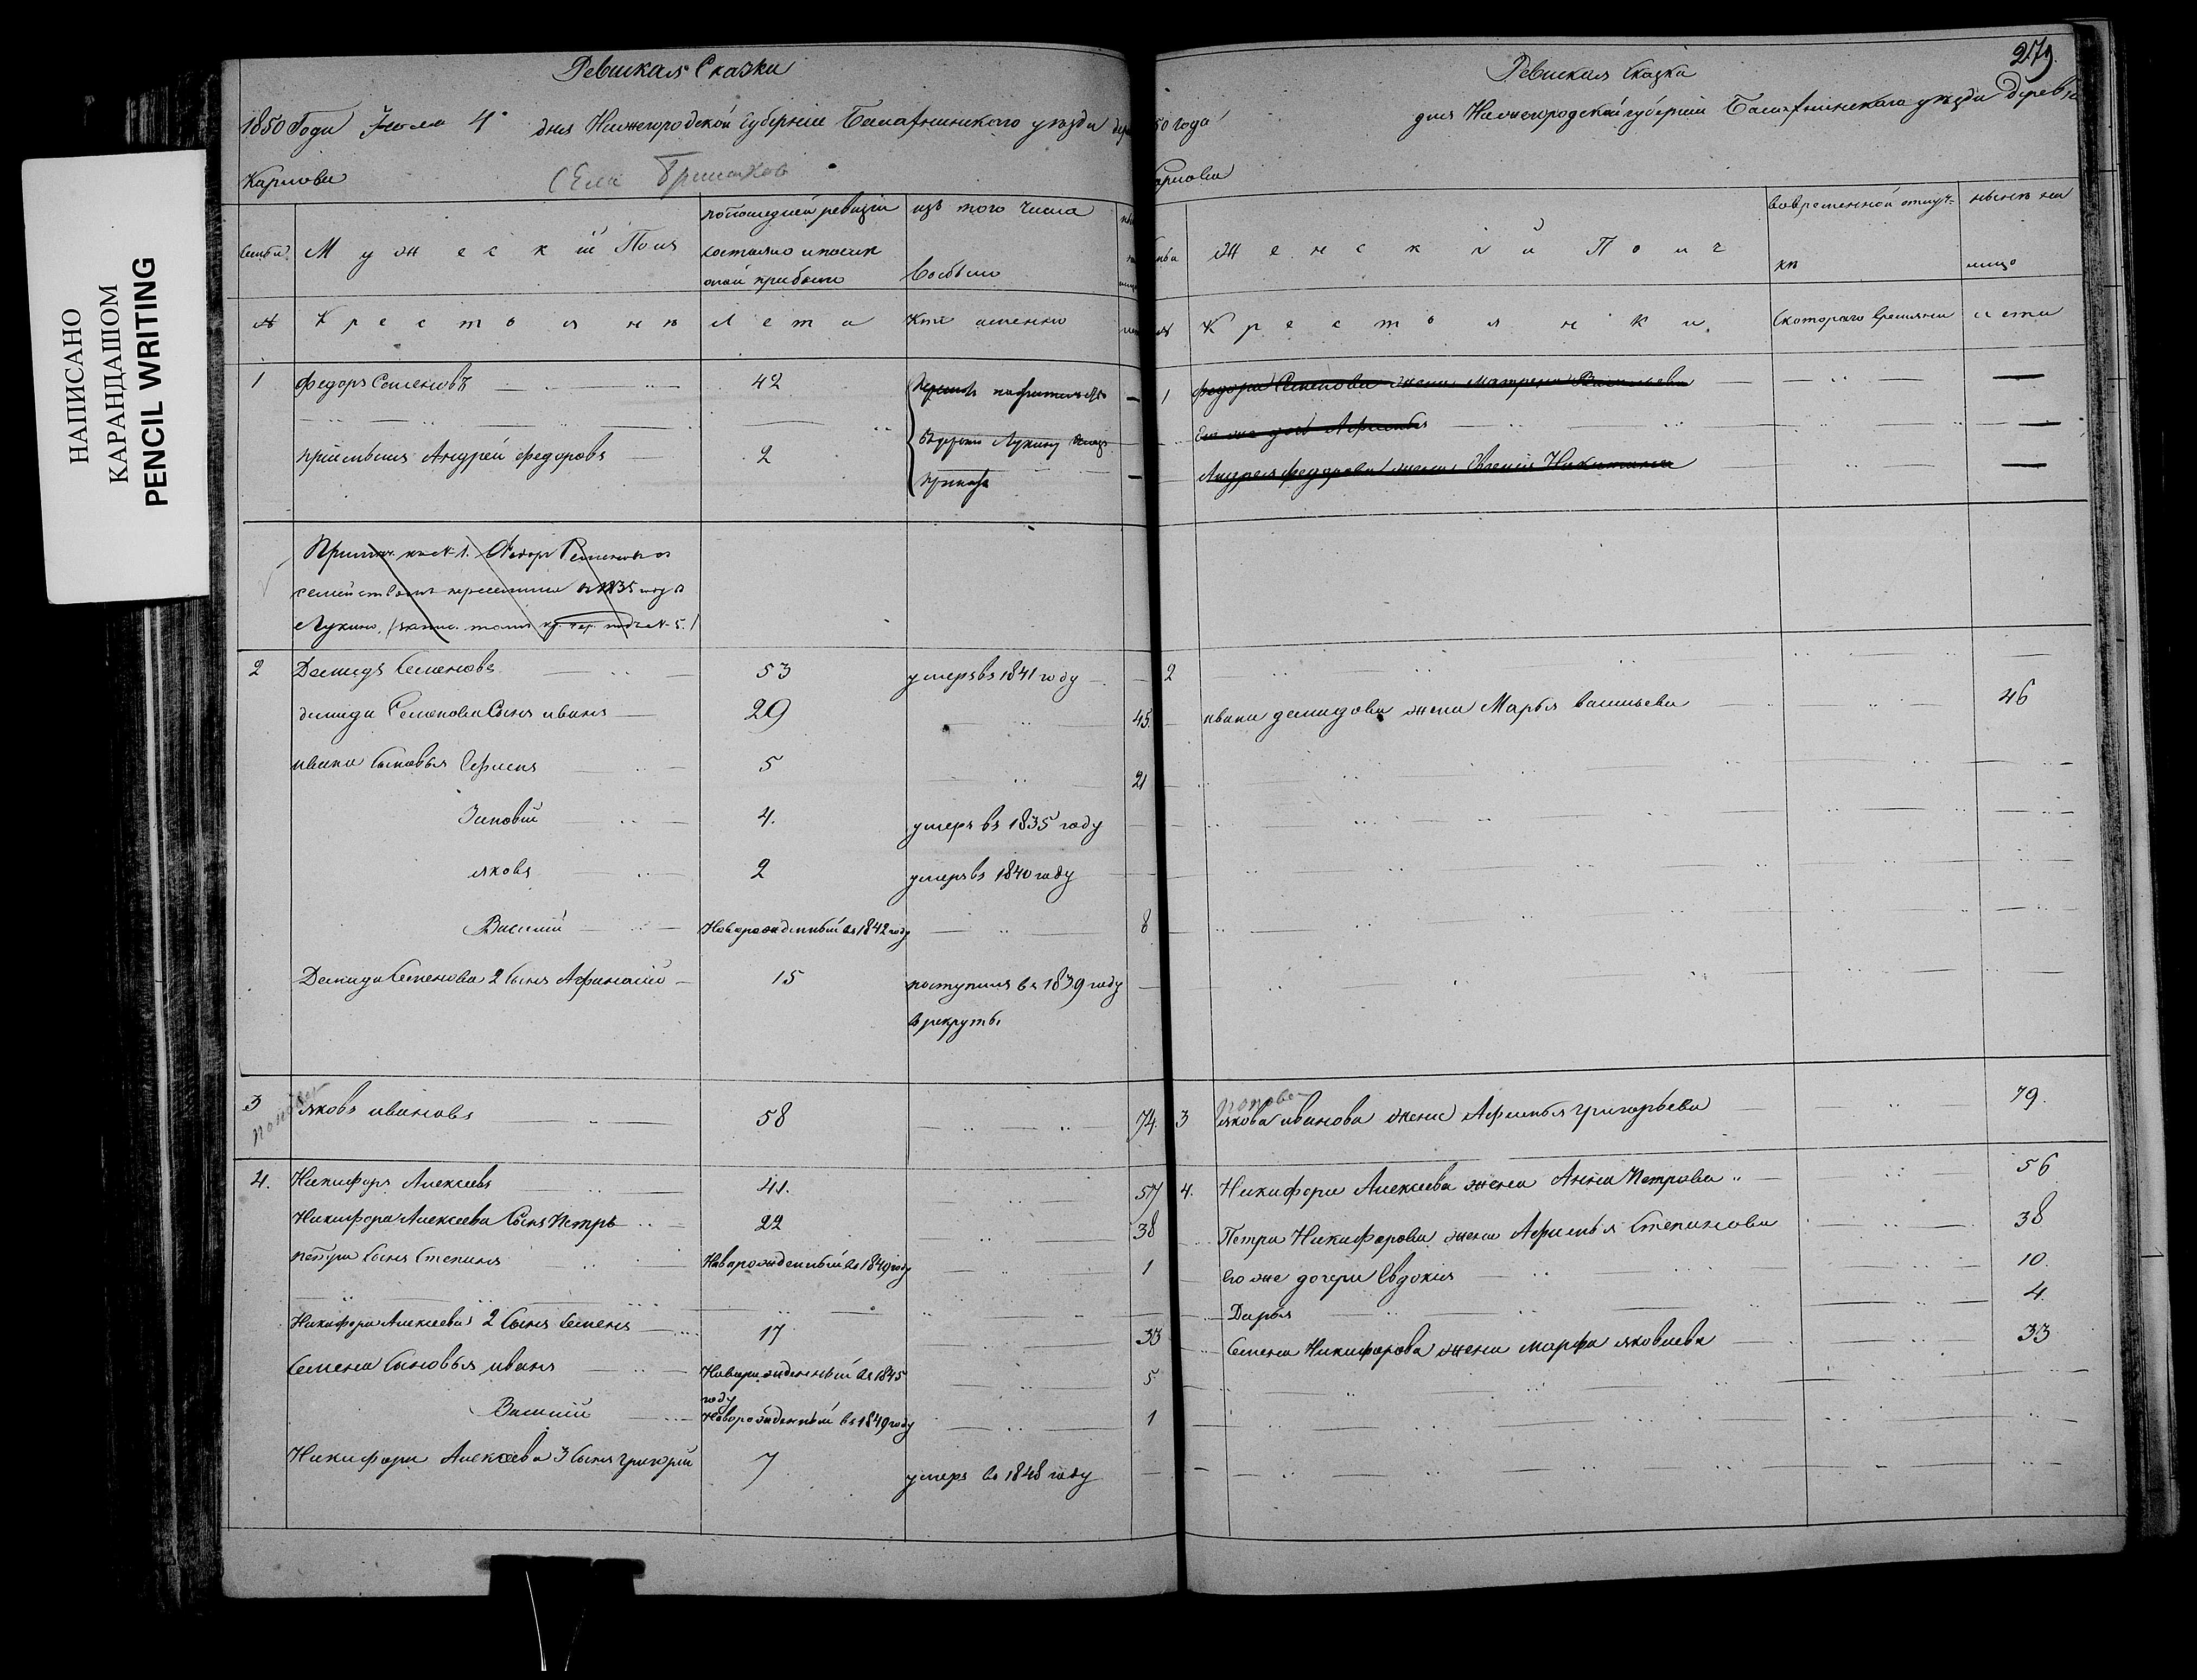 НАПИСАНО
КАРАНДАШОМ
PENCIL WRITING
Ревиская Сказка
1850 Года Июля 4 дня Нижегородской Губернии Балахнинскаго уезда дер
Карпова
Села
Семьи
Мужеский Полъ
по последней ревизии состояло и после оной прибыло
изъ того числа выбыло
№ Крестьяне
Лета
Кто именно
1 Федоръ Семеновъ 42
приемышъ Андрей Федоровъ 2
Лукину
Примеч. къ № 1. Федоръ Семеновъ съ
семействомъ переселенъ въ 1835 году въ
Лукино
2 Демидъ Семеновъ 53 умеръ въ 1841 году
демида Семенова Сынъ иванъ 29 45
ивана Сыновья Ефимъ 5 21
Зиновий 4. умеръ въ 1835 году
яковъ 2 умеръ въ 1840 году
Василий Новорожденный въ 1842 году 8
Демида Семенова 2 Сынъ Афанасий 15 поступилъ въ 1839 году
в рекруты
3 яковъ ивановъ 58 74
4. Никифоръ Алексеевъ 41. 57
Никифора Алексеева Сынъ Петръ 22 38
петра Сынъ Степанъ Новорожденный въ 1849 году 1
Никифора Алексеева 2 Сынъ Семенъ 17 33
Семена Сыновья иванъ Новорожденный въ 1845 году 5
Василий Новорожденный въ 1849 году 1
Никифора Алексеева 3 Сынъ григорий 7 умеръ въ 1848 году
279.
Ревиская Сказка
50 года дня Нижегородской губернии Балахнинскаго уезда Деревня
арпова
Женский Полъ
во временной отлучке
ныне на лицо
№ Крестьянки
Скотораго времяни
лета
1 Федора Семенова жена матрена Васильева
Ево же дочь Афимья
Андрея Федорова жена Никитина
2
ивана демидова жена Марья васильева 46
3 якова иванова жена Афимья григорьева 79.
4. Никифора Алексеева жена Анна Петрова 56
Петра Никифорова жена Афимья Степанова 38
Его же дочери Евдокия 10.
Дарья 4
Семена Никифорова жена марфа яковлева 33